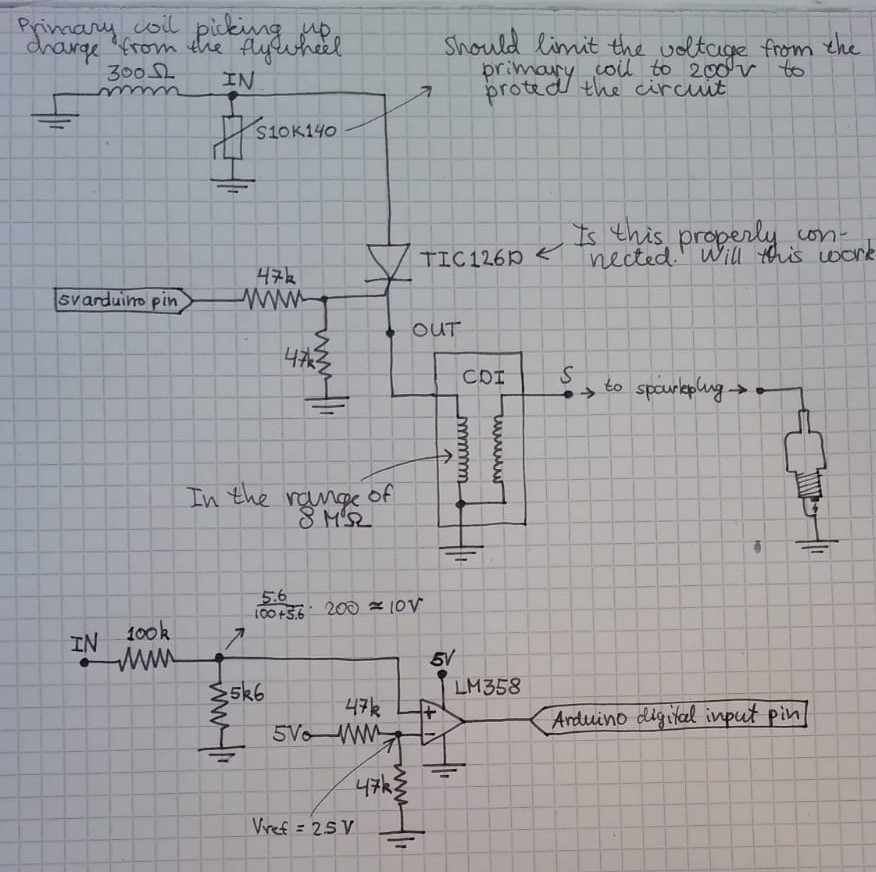 Primary coil picking up
charge from the flywheel
300Ω
IN
Should limit the voltage from the
primary coil to 200V to
proted the circuit
S10K140
TIC126D
Is this properly con-
nected. Will this work
47k
5V arduino pin
47k
OUT
CDI
S
to sparkplug
In the range of
8 MΩ
5.6
100+5.6 · 200 ≈ 10V
IN
100k
5k6
5V
LM358
47k
5V
+
-
Arduino digital input pin
47k
Vref = 2.5V